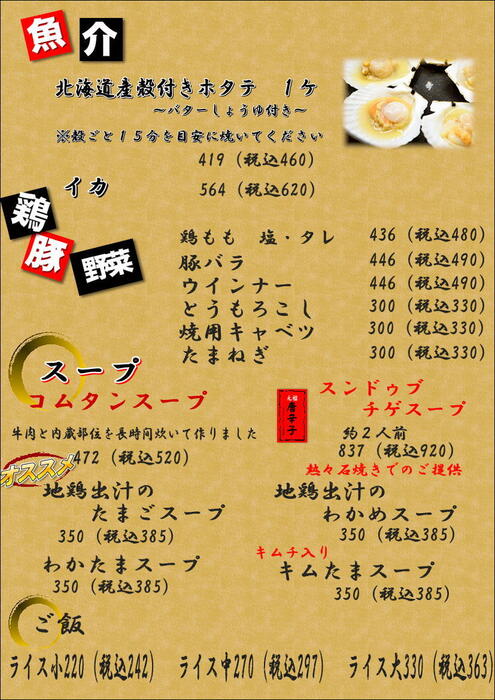 魚介
北海道産殻付きホタテ 1ケ
～バターしょうゆ付き～
※殻ごと15分を目安に焼いてください
419 (税込460)
イカ 564 (税込620)
鶏 豚 野菜
鶏もも 塩・タレ 436 (税込480)
豚バラ 446 (税込490)
ウインナー 446 (税込490)
とうもろこし 300 (税込330)
焼用キャベツ 300 (税込330)
たまねぎ 300 (税込330)
スープ
コムタンスープ
牛肉と内蔵部位を長時間炊いて作りました
オススメ
472 (税込520)
唐辛子
スンドゥブ
チゲスープ
約2人前
837 (税込920)
熱々石焼きでのご提供
地鶏出汁の
たまごスープ
350 (税込385)
地鶏出汁の
わかめスープ
350 (税込385)
わかたまスープ
350 (税込385)
キムチ入り
キムたまスープ
350 (税込385)
ご飯
ライス小220 (税込242) ライス中270 (税込297) ライス大330 (税込363)